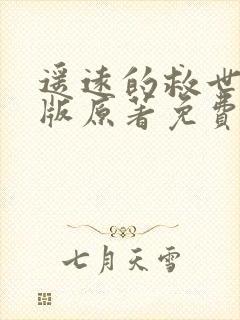 遥远的救世
版原著免費
七月天雪